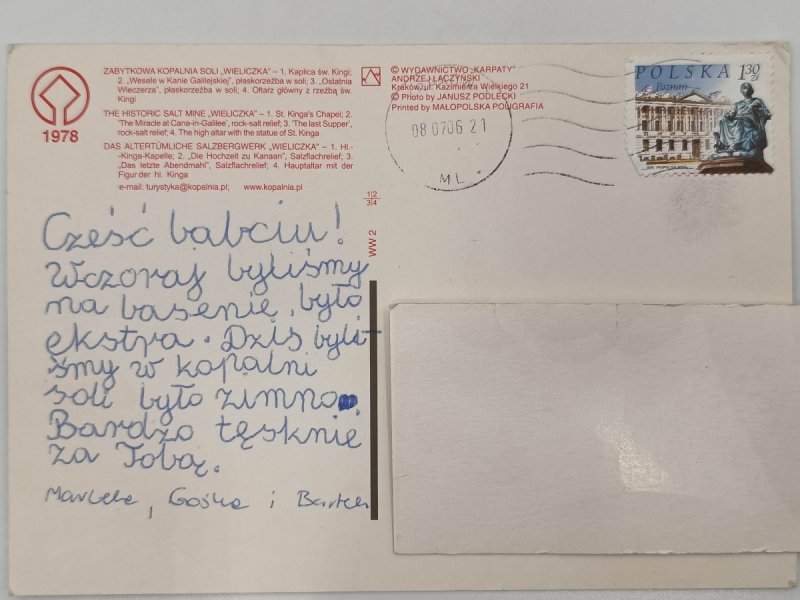 ZABYTKOWA KOPALNIA SOLI „WIELICZKA” – 1. Kaplica św. Kingi;
2. „Wesele w Kanie Galilejskiej”, płaskorzeźba w soli; 3. „Ostatnia
Wieczerza”, płaskorzeźba w soli; 4. Ołtarz główny z rzeźbą św.
Kingi
THE HISTORIC SALT MINE „WIELICZKA” – 1. St. Kinga's Chapel; 2.
'The Miracle at Cana-in-Galilee', rock-salt relief; 3. 'The last Supper',
rock-salt relief; 4. The high altar with the statue of St. Kinga
DAS ALTERTÜMLICHE SALZBERGWERK „WIELICZKA” – 1. Hl.-
-Kinga-Kapelle; 2. „Die Hochzeit zu Kanaan”, Salzflachrelief; 3.
„Das letzte Abendmahl”, Salzflachrelief; 4. Hauptaltar mit der
Figur der hl. Kinga
e-mail: turystyka@kopalnia.pl; www.kopalnia.pl
1978
© WYDAWNICTWO „KARPATY”
ANDRZEJ ŁĄCZYŃSKI
Kraków, ul. Kazimierza Wielkiego 21
© Photo by JANUSZ PODLECKI
Printed by MAŁOPOLSKA POLIGRAFIA
POLSKA 1,30 zł
Poznań
08 0706 21
ML
1 2
3 4
WW 2
Cześć babciu!
Wczoraj byliśmy
na basenie, było
ekstra. Dziś byli
śmy w kopalni
soli było zimno
Bardzo tęsknię
za Tobą.
Gośka i